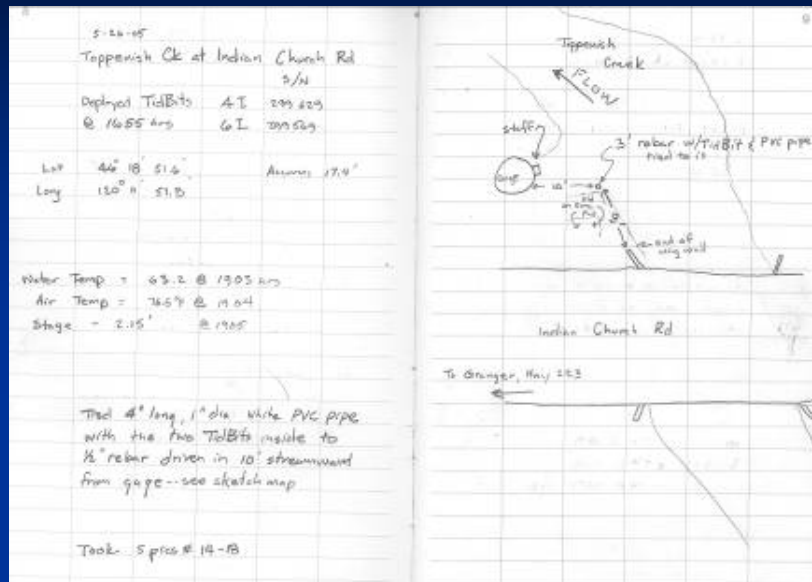 5-26-05
Toppenish Ck at Indian Church Rd
S/N
Deployed TidBits 4 I 299629
@ 1655 hrs 6 I 299569
Lat 46° 18' 51.6"
Long 120° 11' 51.8
Water Temp = 63.2 @ 1903 hrs
Air Temp = 76.5°F @ 1904
Stage - 2.15' @ 1905
Tied 4" long, 1" dia white PVC pipe
with the two TidBits inside to
½" rebar driven in 10' streamward
from gage--see sketch map
Took 5 pics # 14-18
Toppenish
Creek
FLOW
staff
3' rebar w/TidBit & PVC pipe
tied to it
gage
10'
end of
wing wall
Indian Church Rd
To Granger, Hwy 223